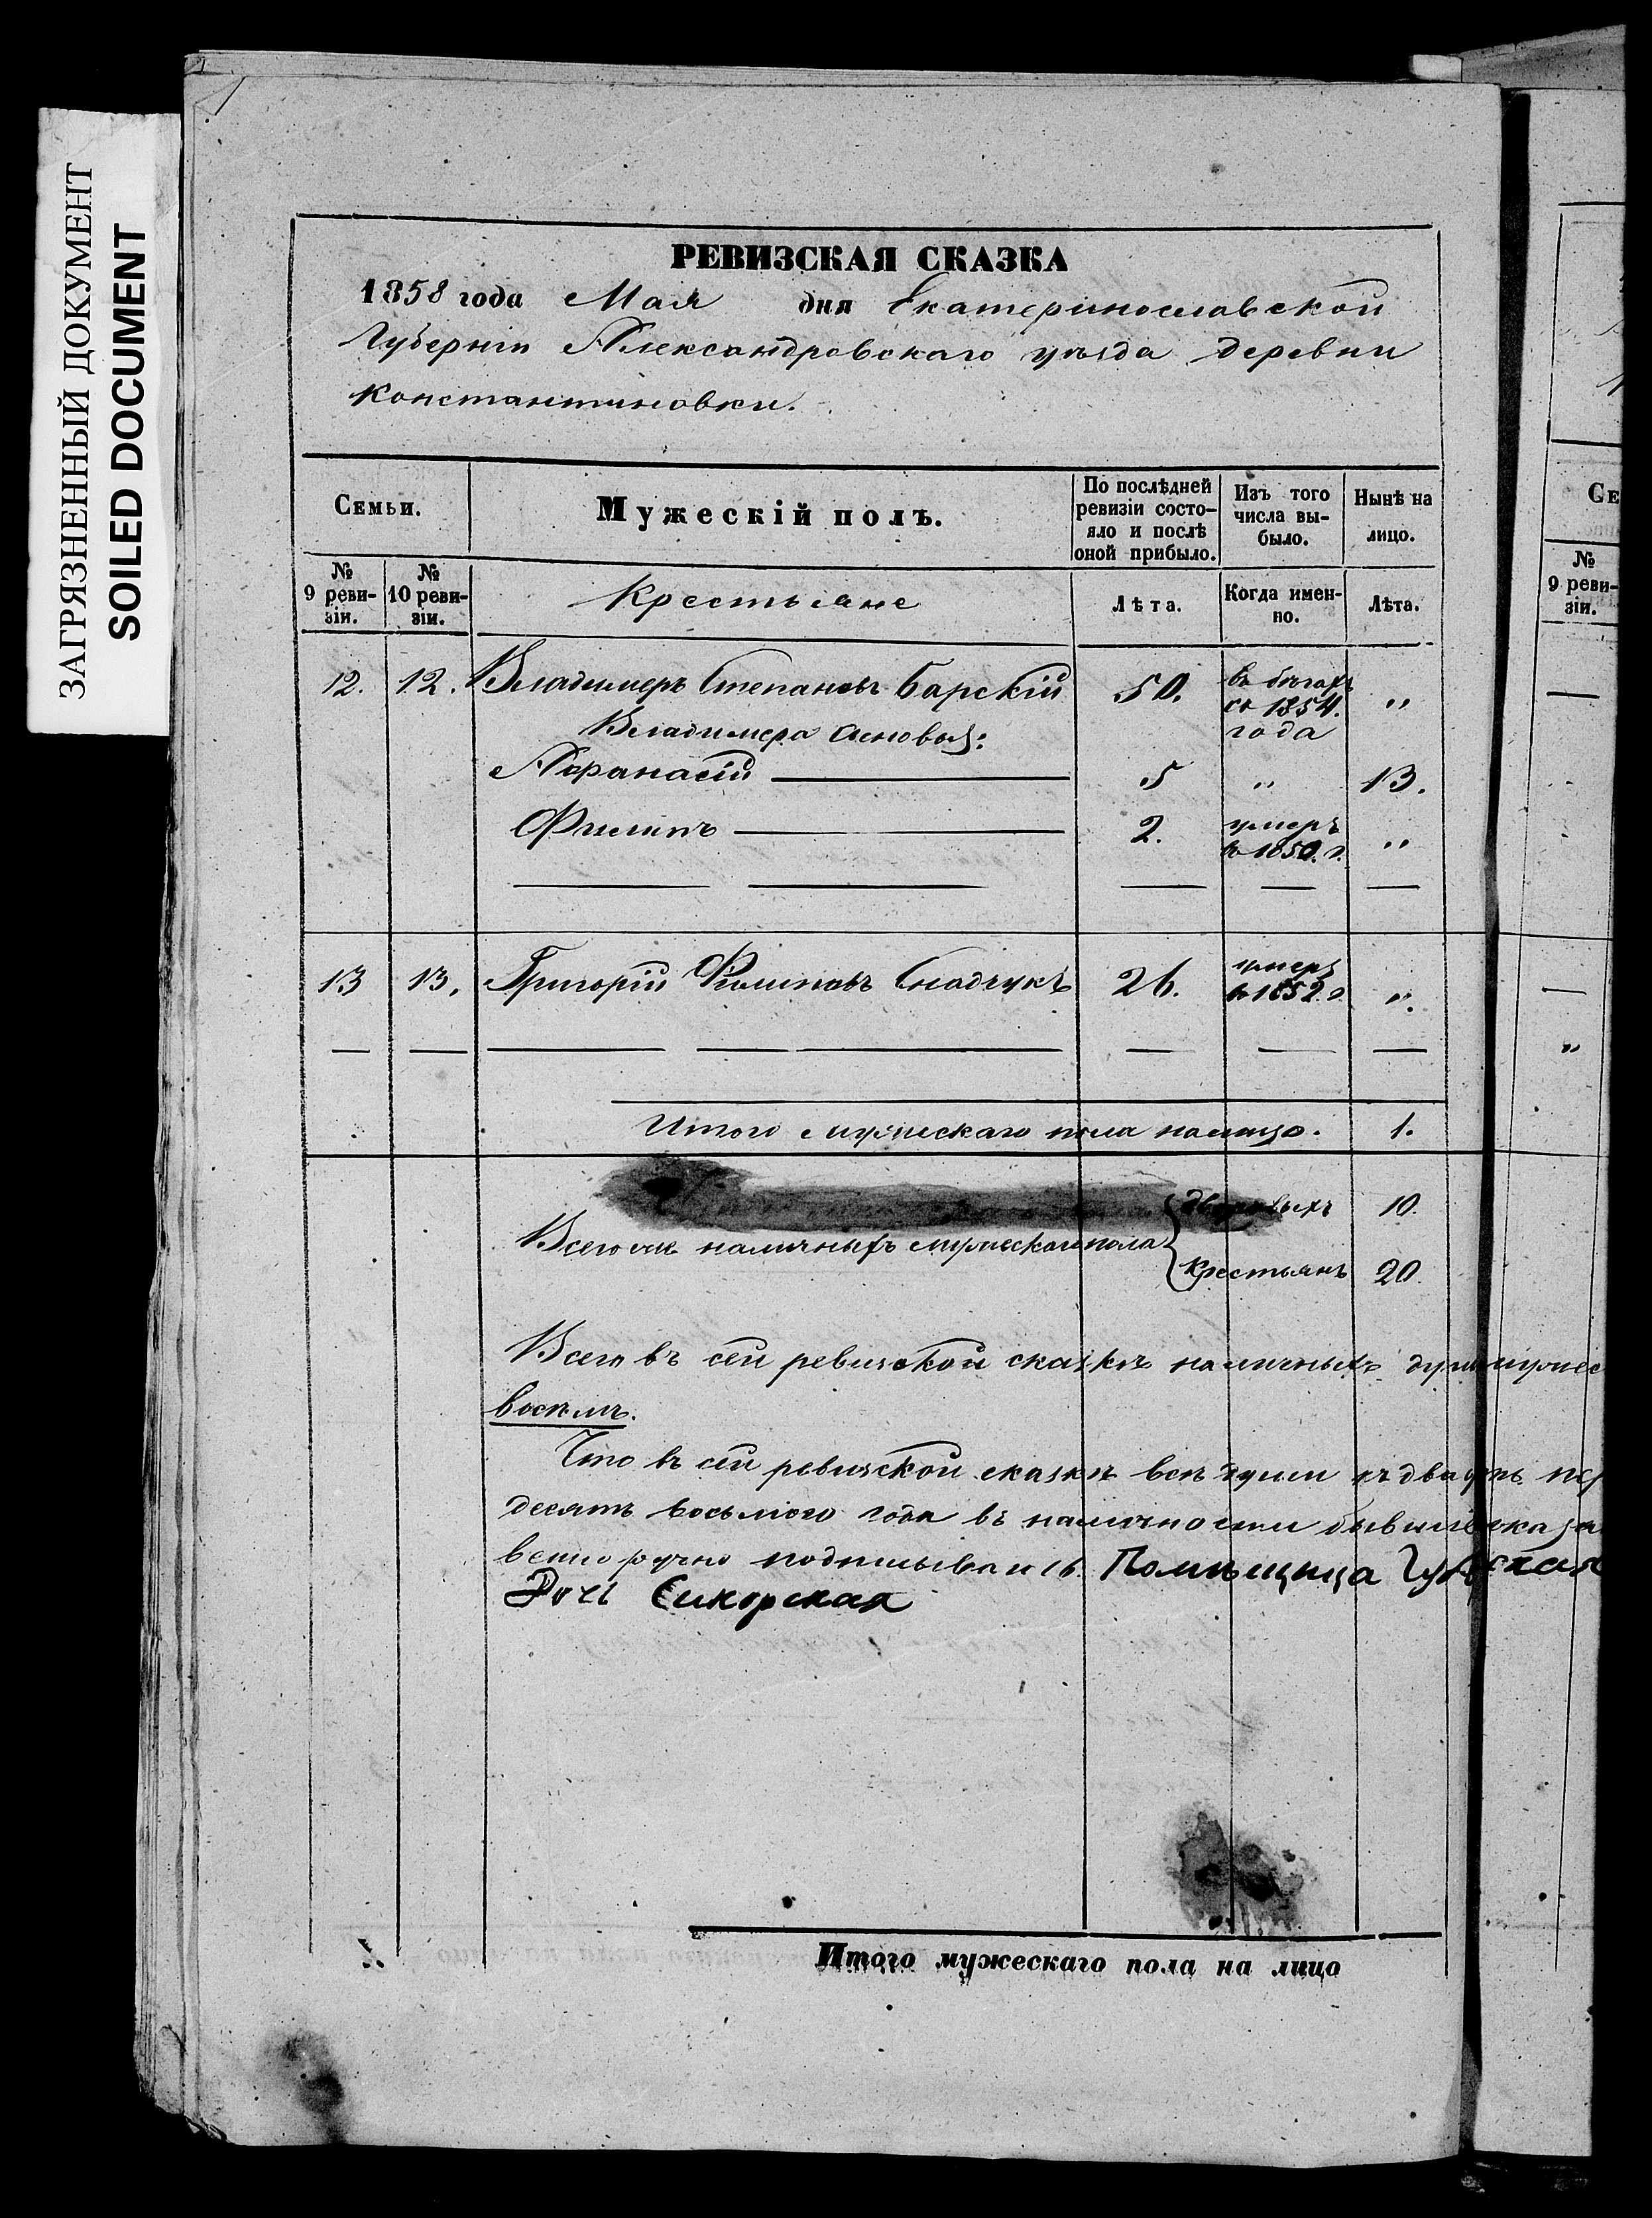 ЗАГРЯЗНЕННЫЙ ДОКУМЕНТ
SOILED DOCUMENT
РЕВИЗСКАЯ СКАЗКА
1858 года Мая дня Екатеринославской
Губерніи Александровскаго уѣзда деревни
Константиновки.
Семьи. Мужескій полъ. По послѣдней ревизіи состо-яло и послѣ оной прибыло. Изъ того числа вы-было. Нынѣ на лицо.
№ 9 реви-зіи. № 10 реви-зіи. Крестьяне Лѣта. Когда имен-но. Лѣта.
12. 12. Владимеръ Степановъ Барскій 50. въ бѣгахъ съ 1854. года „
Владимера сыновья:
Афанасій 5 „ 13.
Филипъ 2. умеръ въ 1850. г. „
13 13. Григорій Филиповъ 26. умеръ въ 1852. г „
Итого мужескаго пола налицо. 1.
дворовыхъ 10.
Всего наличныхъ мужескаго пола
крестьянъ 20.
Всего въ сей ревизской сказкѣ наличныхъ душъ мужес
восемъ.
Что въ сей ревизской сказкѣ всѣ души къ
десятъ восьмого года въ наличности бывшіе показа
венноручно подписываюсь. Помѣщица
Сикорская
Итого мужескаго пола на лицо
Се
№
9 реви-
зіи.
„